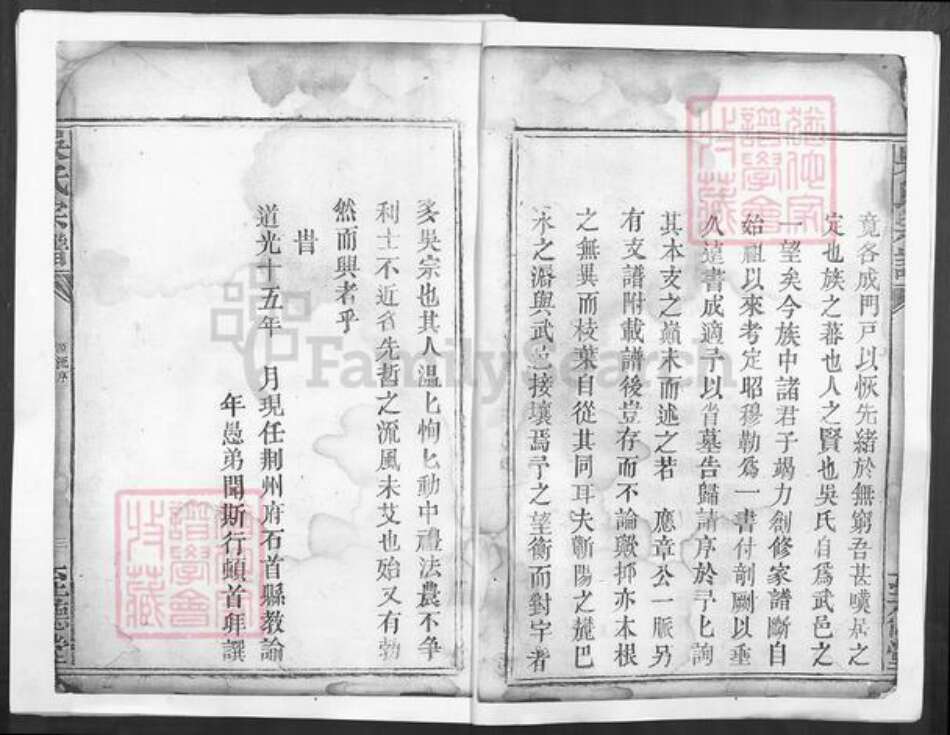 竟各成門戸以恢先緒於無窮吾甚嘆居之
定也族之蕃也人之賢也吳氏自爲武邑之
一望矣今族中諸君子竭力創修家譜斷自
始祖以來考定昭穆勒爲一書付剞劂以垂
久遠書成適予以省墓告歸請序於予匕詢
其本支之巔末而述之若　應章公一脈另
有支譜附載譜後豈存而不論歟抑亦本根
之無異而枝葉自從其同耳夫蘄陽之麓巴
永之濱與武邑接壤焉予之望衡而對宇者
多吳宗也其人溫匕恂匕動中禮法農不爭
利士不近名先哲之流風未艾也殆又有勃
然而興者乎
旹
道光十五年　月現任荆州府石首縣教諭
年愚弟聞斯行頓首拜譔
吳氏宗譜
至德堂
猶他家譜學會收藏
FamilySearch